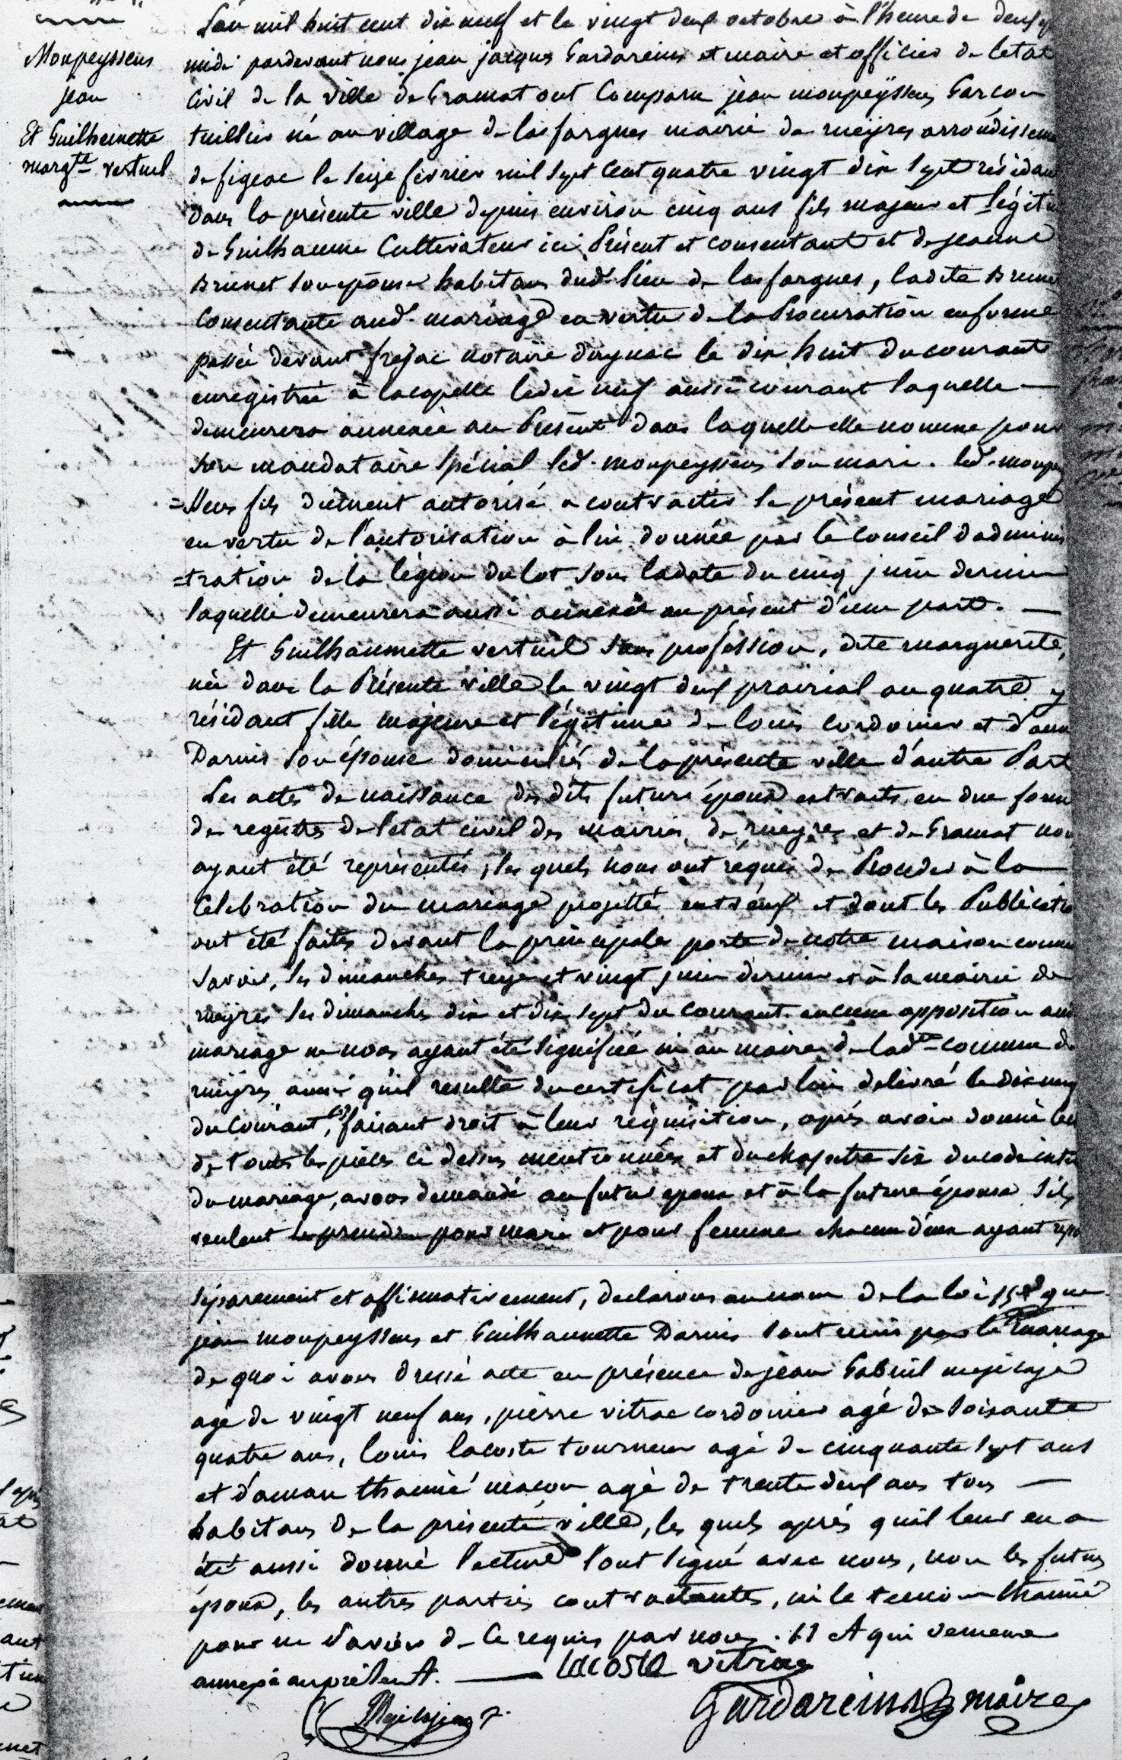 Monpeyssens
jean
Et Guilhemette
margte vertuel
L'an mil huit cent dix neuf et le vingt deux octobre à l'heure de deux
midi pardevant nous jean jacques Gardareins et maire et officier de l'etat
Civil de la ville de Gramat ont Comparu jean monpeyssens Garcon
tuillier né au village de lasfargues mairie de rueyres arrondisseme
de figeac le seize fevrier mil sept Cent quatre vingt dix sept résidan
dans la présente ville depuis environ cinq ans fils majeur et légiti
de Guilhaume Cultivateur ici Présent et consentant et de jeanne
Brunet son épouse habitans dud. lieu de lasfargues, ladite Brune
Consentante aud. mariage en vertu de la Procuration en forme
passée devant frejac notaire d'aynac le dix huit du courant
enregistrée à lacapelle le dix neuf aussi courant laquelle
demeurera annexée au Présent dans laquelle elle nomme pour
son mandataire spécial led. monpeyssens son mari. led. monpey
=ssens fils duement autorisé a contracter le présent mariage
en vertu de l'autorisation à lui donnée par le Conseil d'adminis
=tration de la légion du lot sous la date du cinq juin dernier
laquelle demeurera aussi annexée au présent d'une part.
Et Guilhaumette vertuel sans profession, dite marguerite,
née dans la Présente ville le vingt deux prairial an quatre y
résidant fille majeure et légitime de louis cordonier et d'anne
Darnis son épouse domiciliés de la présente ville d'autre Part
Les actes de naissance des dits futurs époux extraits en due forme
des registres de l'etat civil des mairies de rueyres et de Gramat nous
ayant été représentés, les quels nous ont réquis de Proceder à la
Célébration du mariage projetté entr'eux et dont les Publicatio
ont été faites devant la principale porte de notre maison commu
savoir, les dimanches treize et vingt juin dernier et à la mairie de
rueyres les dimanches dix et dix sept du courant. aucune opposition aud
mariage ne nous ayant été signifiée ni au maire de ladte commune de
rueyres ainsi qu'il resulte du certificat par lui delivré le dix neuf
du Courant, faisant droit à leur réquisition, après avoir donné lec
de toutes les pièces ci dessus mentionnées et du chapitre six du code intit
du mariage, avons demandé au futur epoux et à la future épouse s'ils
veulent se prendre pour mari et pour femme chacun d'eux ayant repo
séparement et affirmativement, declarons au nom de la loi que
jean monpeyssens et Guilhaumette Darnis sont unis par le mariage
de quoi avons dressé acte en présence de jean Gabriel mejecaze
agé de vingt neuf ans, pierre vitrac cordonier agé de soixante
quatre ans, louis lacoste tourneur agé de cinquante sept ans
et d'aman thamié macon agé de trente deux ans tous
habitans de la présente ville, les quels après qu'il leur en a
été aussi donné lecture l'ont signé avec nous, non les futurs
époux, les autres parties contractantes, ni le temoin thamié
pour ne savoir de ce requis par nous. Et qui demeure
annexé au présent.
Lacoste vitrac
Gardareins maire